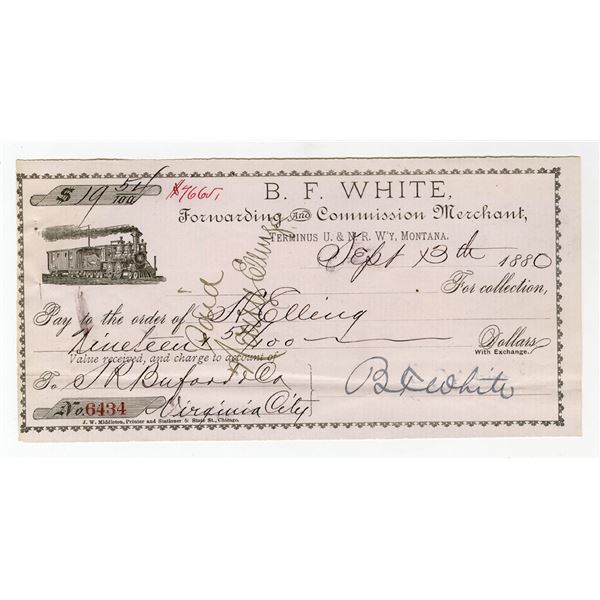 $ 19 54/100
$7665,
B. F. WHITE,
Forwarding and Commission Merchant,
TERMINUS U. & N. R. W'Y, MONTANA.
Sept 13th 1880
For collection,
Pay to the order of H Elling
Nineteen & 54/100 Dollars
With Exchange.
Value received, and charge to account of
To S R Buford & Co
B F White
Virginia City
No. 6434
J. W. Middleton, Printer and Stationer 55 State St., Chicago.
Paid
Henry Elling